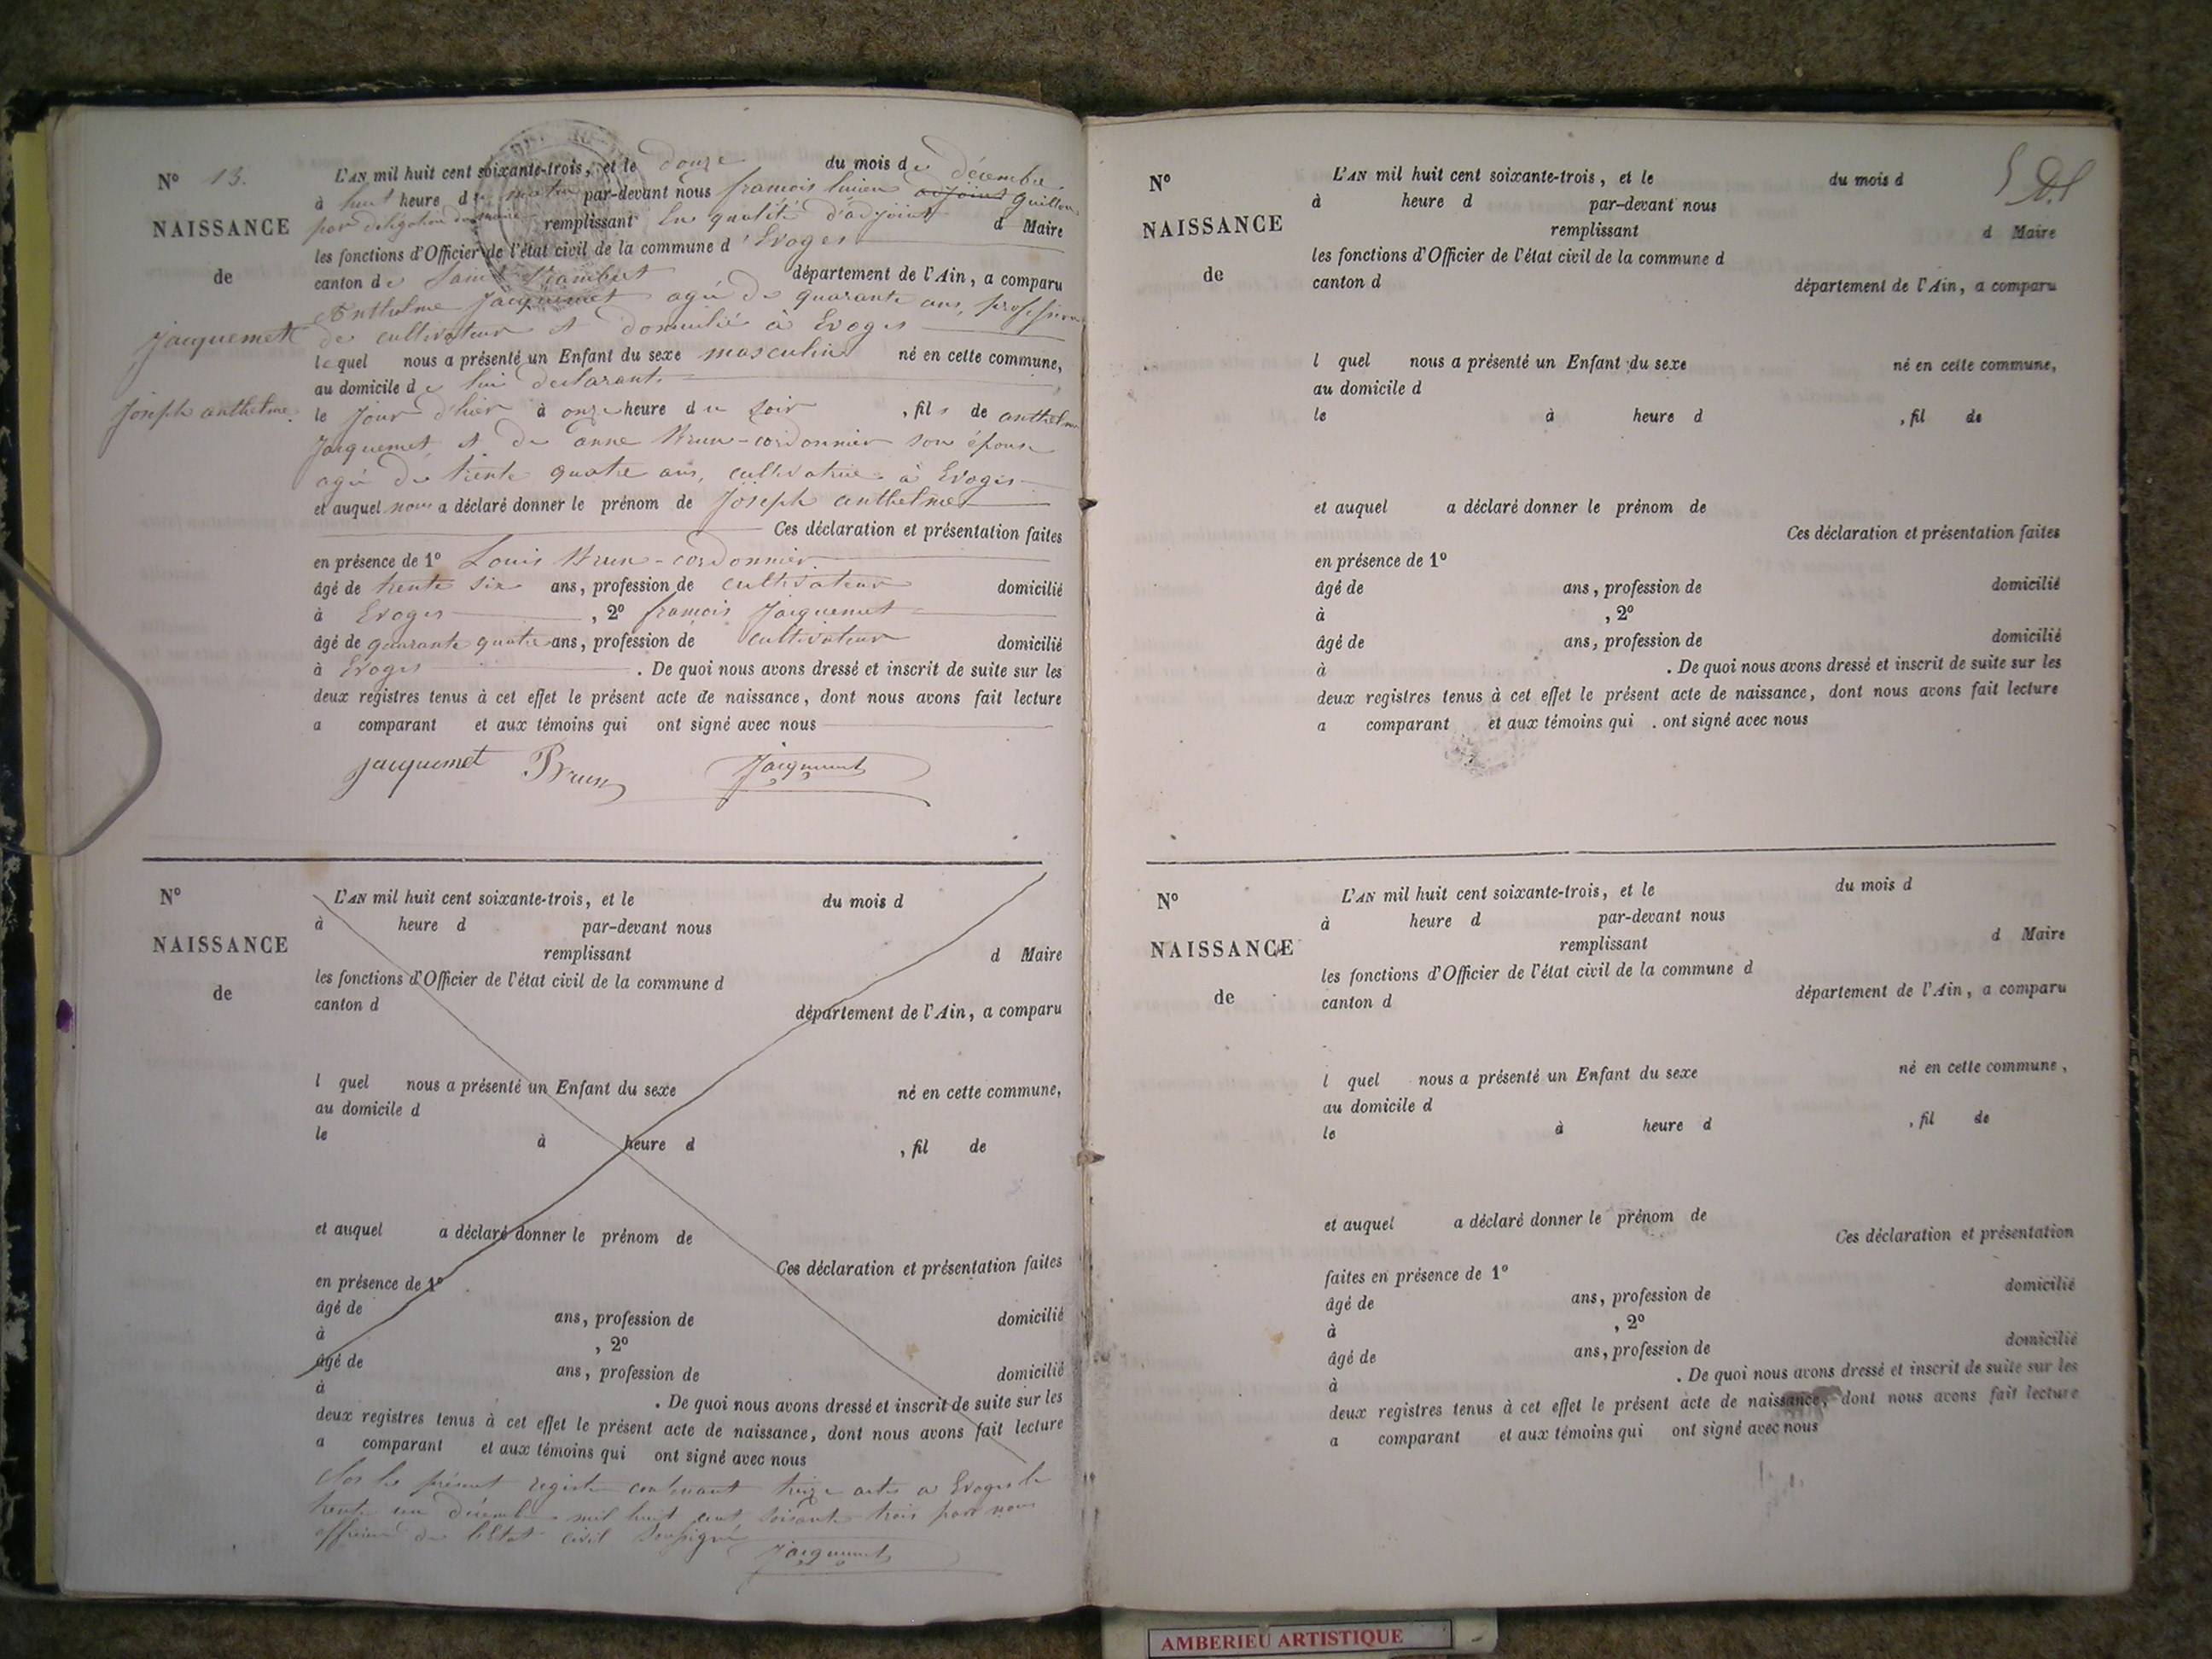 N° 13.
NAISSANCE
de
Jacquemet
Joseph anthelme.
L'AN mil huit cent soixante-trois, et le douze du mois de décembre
à huit heure du matin par-devant nous françois adjoint Guillon
par délégation remplissant en qualité d'adjoint d Maire
les fonctions d'Officier de l'état civil de la commune d'Evoges
canton de Saint Rambert département de l'Ain, a comparu
Anthelme Jacquemet agé de quarante ans, profession
de cultivateur et domicilié à Evoges
lequel nous a présenté un Enfant du sexe masculin né en cette commune,
au domicile de lui déclarant
le jour d'hier à onze heure du soir, fils de anthelme
Jacquemet et de anne Brun-cordonnier son épouse
agée de trente quatre ans, cultivatrice à Evoges
et auquel nous a déclaré donner le prénom de Joseph anthelme
Ces déclaration et présentation faites
en présence de 1° Louis Brun-cordonnier
âgé de trente six ans, profession de cultivateur domicilié
à Evoges, 2° françois Jacquemet
âgé de quarante quatre ans, profession de cultivateur domicilié
à Evoges. De quoi nous avons dressé et inscrit de suite sur les
deux registres tenus à cet effet le présent acte de naissance, dont nous avons fait lecture
a comparant et aux témoins qui ont signé avec nous
Jacquemet Brun Jacquemet
N°
NAISSANCE
de
L'AN mil huit cent soixante-trois, et le du mois d
à heure d par-devant nous
remplissant d Maire
les fonctions d'Officier de l'état civil de la commune d
canton d département de l'Ain, a comparu
l quel nous a présenté un Enfant du sexe né en cette commune,
au domicile d
le à heure d , fil de
et auquel a déclaré donner le prénom de
Ces déclaration et présentation faites
en présence de 1°
âgé de ans, profession de domicilié
à , 2°
âgé de ans, profession de domicilié
à . De quoi nous avons dressé et inscrit de suite sur les
deux registres tenus à cet effet le présent acte de naissance, dont nous avons fait lecture
a comparant et aux témoins qui ont signé avec nous
Clos le présent registre contenant treize actes a Evoges le
trente un décembre mil huit cent soixante trois par nous
officier de l'Etat civil soussigné
Jacquemet
N°
NAISSANCE
de
L'AN mil huit cent soixante-trois, et le du mois d
à heure d par-devant nous
remplissant d Maire
les fonctions d'Officier de l'état civil de la commune d
canton d département de l'Ain, a comparu
l quel nous a présenté un Enfant du sexe né en cette commune,
au domicile d
le à heure d , fil de
et auquel a déclaré donner le prénom de
Ces déclaration et présentation faites
en présence de 1°
âgé de ans, profession de domicilié
à , 2°
âgé de ans, profession de domicilié
à . De quoi nous avons dressé et inscrit de suite sur les
deux registres tenus à cet effet le présent acte de naissance, dont nous avons fait lecture
a comparant et aux témoins qui . ont signé avec nous
N°
NAISSANCE
de
L'AN mil huit cent soixante-trois, et le du mois d
à heure d par-devant nous
remplissant d Maire
les fonctions d'Officier de l'état civil de la commune d
canton d département de l'Ain, a comparu
l quel nous a présenté un Enfant du sexe né en cette commune,
au domicile d
le à heure d , fil de
et auquel a déclaré donner le prénom de
Ces déclaration et présentation
faites en présence de 1°
âgé de ans, profession de domicilié
à , 2°
âgé de ans, profession de domicilié
à . De quoi nous avons dressé et inscrit de suite sur les
deux registres tenus à cet effet le présent acte de naissance, dont nous avons fait lecture
a comparant et aux témoins qui ont signé avec nous
AMBERIEU ARTISTIQUE